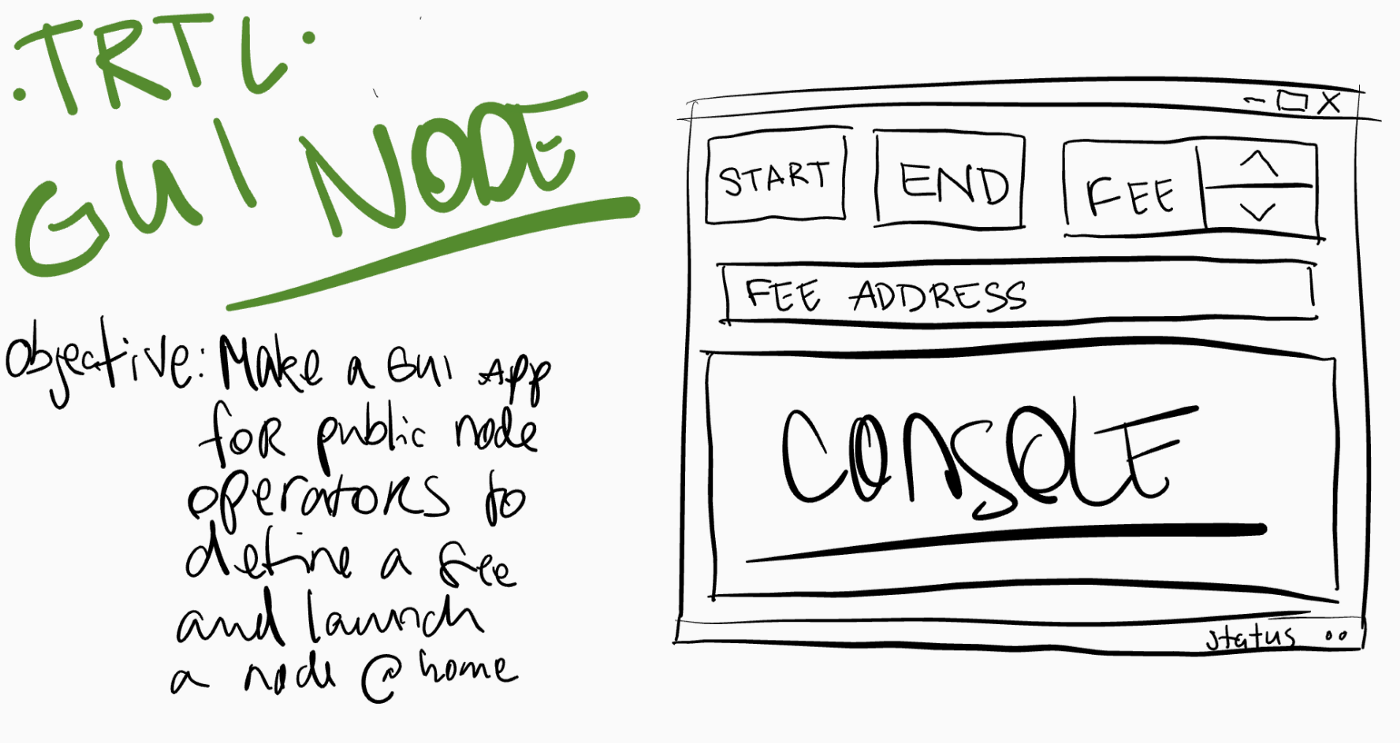 .TRTL.
GUI NODE
objective: Make a GUI App
for public node
operators to
define a fee
and launch
a node @home
START
END
FEE
FEE ADDRESS
CONSOLE
status